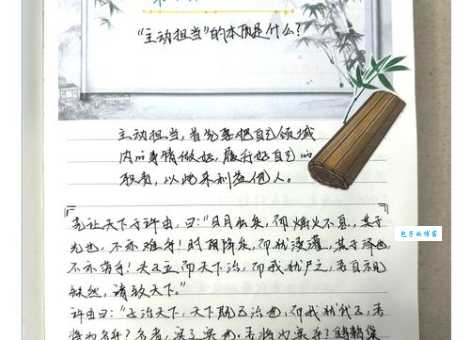 "主动担当"的本质是什么?
主动担当,首先要把自己领域
内的事情做好,履行好自己的
职责,以此来利益他人。
尧让天下于许由,曰:"日月出矣,而爝火不息,其于
光也,不亦难乎!时雨降矣,而犹浸灌,其于泽也,
不亦劳乎!夫子立而天下治,而我犹尸之,吾自视
缺然,请致天下。"
许由曰:"子治天下,天下既已治也,而我犹代子,吾
将为名乎?名者,实之宾也,吾将为宾乎?鹪鹩巢